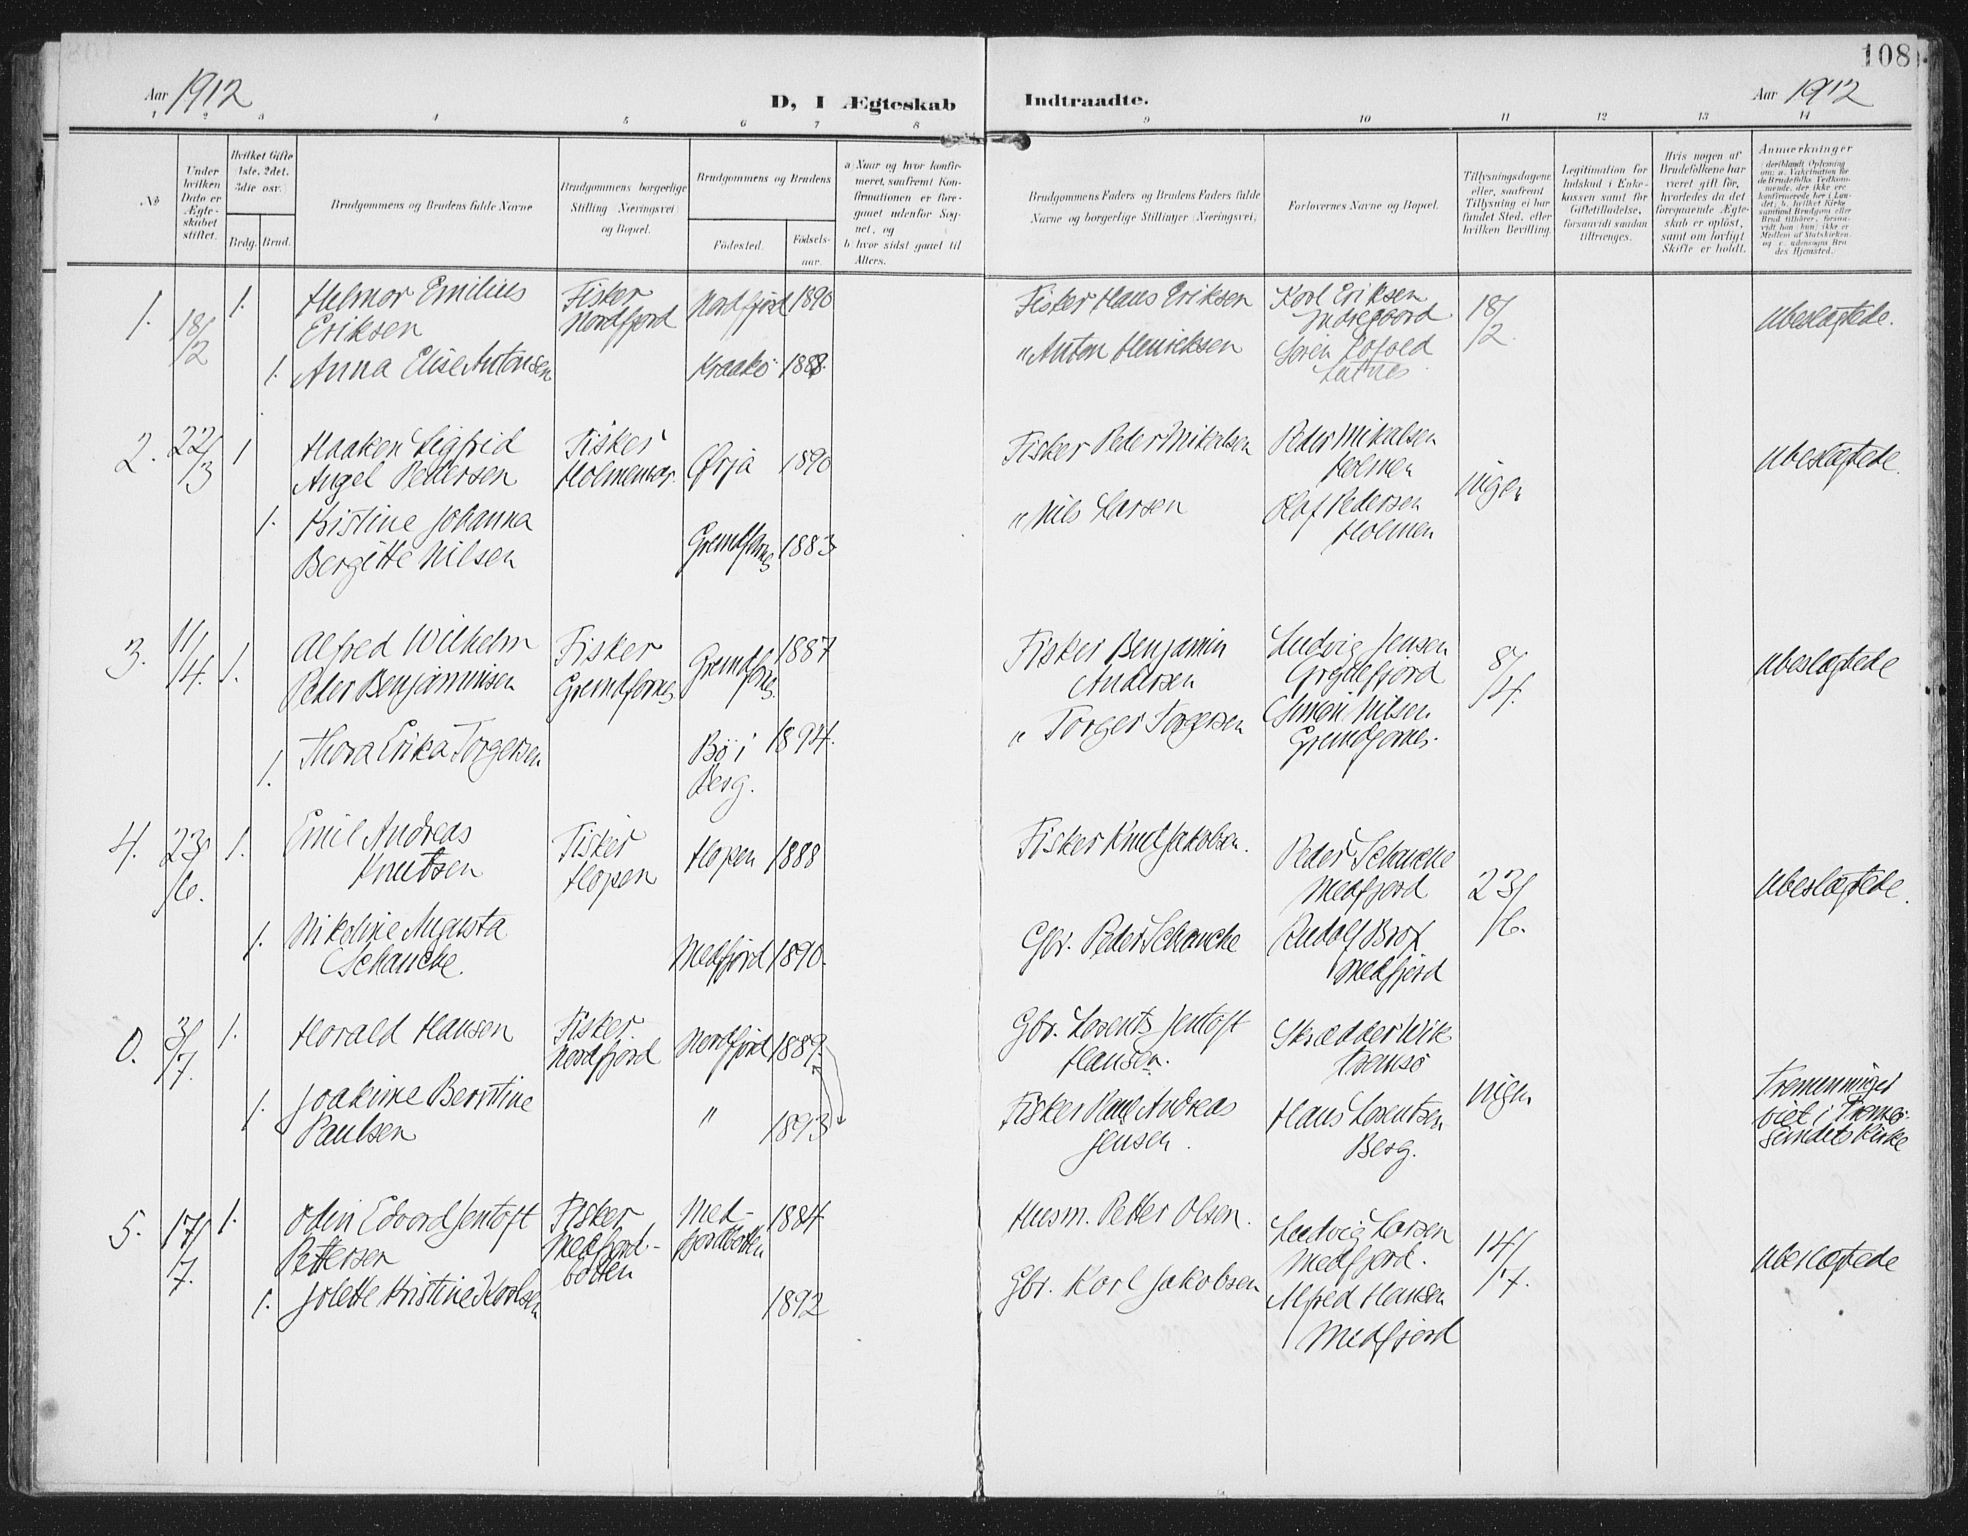 108
Aar 1912
D, I Ægteskab
Indtraadte.
Aar 1912
1 2 3 4 5 6 7 8
9 10 11 12 13 14
No
Under
hvilken
Dato er
Ægte-
skabet
stiftet.
Hvilket Gifte
1ste, 2det,
3die osv.
Brdg. Brud.
Brudgommens og Brudens fulde Navne
Brudgommens borgerlige
Stilling (Næringsvei)
og Bopæl.
Brudgommens og Brudens
Fødested.
Fødsels-
aar.
a. Naar og hvor konfir-
meret, saafremt Kon-
firmationen er fore-
gaaet udenfor Sog-
net, og
b. hvor sidst gaaet til
Alters.
Brudgommens Faders og Brudens Faders fulde
Navne og borgerlige Stillinger (Næringsvei)
Forlovernes Navne og Bopæl.
Tillysningsdagene
eller, saafremt
Tillysning ei har
fundet Sted, efter
hvilken Bevilling.
Legitimation for
Indskud i Enke-
kassen samt for
Giftetilladelse,
forsaavidt saadan
tiltrænges.
Hvis nogen af
Brudefolkene har
været gift før,
hvorledes da det
foregaaende Ægte-
skab er opløst,
samt om lovligt
Skifte er holdt.
Anmærkninger
1. 18/2 1. Helmer Emilius
Eriksen
Fisker
Nordfjord
Nordfjord 1890
Fisker Hans Eriksen
Karl Eriksen
Indregaard
18/2.
Ubeslægtede.
1. Anna Elise Antonsen
Kraakø 1888.
" Anton Henriksen
Søren Lofoed
2. 22/3 1 Haaken Sigfrid
Angel Pedersen
Fisker
Holmenvær
Ørja 1890
Fisker Peder Mikalsen
Peder Mikalsen
Holmen
ingen
Ubeslægtede.
1. Kristine Johanna
Bergitte Nilsen
Grundfarnes 1883
" Nils Larsen
Olaf Pedersen
Holmen
3. 11/4. 1. Alfred Wilhelm
Peder Benjaminsen
Fisker
Grundfarnes
Grundfarnes 1887
Fisker Benjamin
Andersen
Ludvig Jensen
Gryllefjord
8/4.
Ubeslægtede
1. Thora Erika Torgersen
Bø i
Berg. 1894.
" Torger Torgersen
Simon Nilsen
Grundfarnes.
4. 23/6. 1. Emil Andreas
Knutsen
Fisker
Hopen
Hopen 1888
Fisker Knut Jakobsen.
Peder Schancke
Medfjord
23/6.
Ubeslægtede.
1. Nikoline Augusta
Schancke.
Medfjord 1890.
Gbr. Peder Schancke
Rudolf Brox
Medfjord
0. 3/7. 1. Harald Hansen
Fisker
Nordfjord
Nordfjord 1889.
Gbr. Lorents Jentoft
Hansen.
Skrædder Wik
Tromsø
ingen
Tremenninger
viet i Tromsø-
sundets Kirke
1. Joakime Berntine
Paulsen
" 1893
Fisker Paul Andreas
Jensen.
Hans Lorentsen
Berg.
5. 17/7. 1. Odin Edvard Jentoft
Pettersen
Fisker
Medfjord-
botten
Med-
fjordbotten 1884
Husm. Petter Olsen.
Ludvig Larsen
Medfjord.
14/7.
Ubeslægtede
1. Jolette Kristine Karlsen
1892
Gbr. Karl Jakobsen
Alfred Hansen
Medfjord